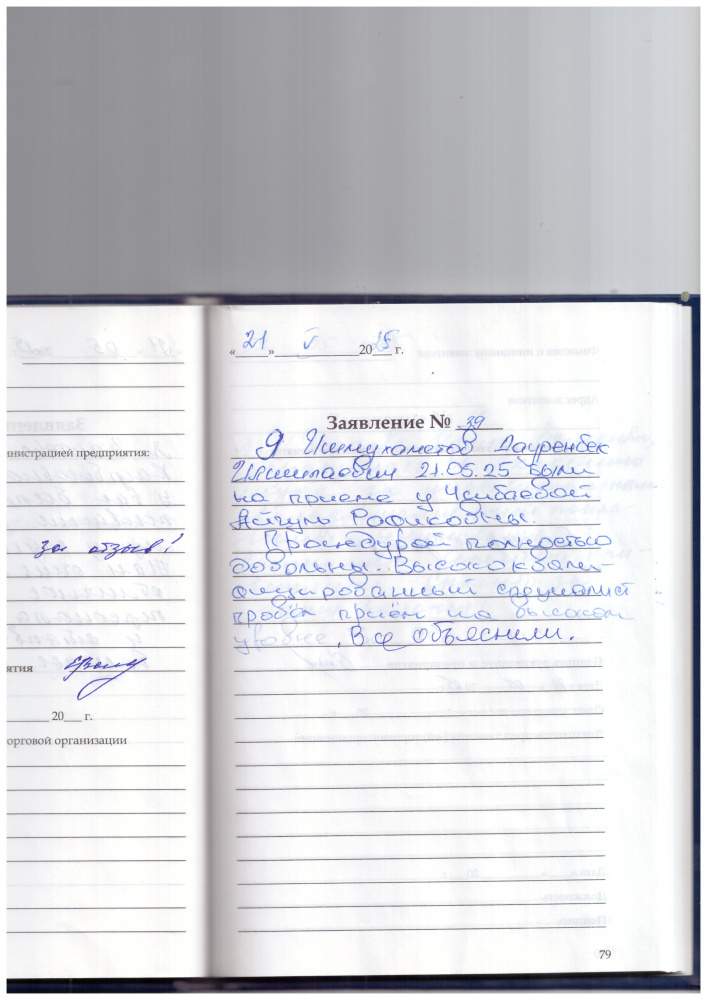 нистрацией предприятия:
за отзыв!
ятия
20 г.
орговой организации
«21» V 2025 г.
Заявление № 39
Я Ишмухаметов Дауренбек
21.05.25 были
на приеме у Чинбаевой
Айгуль Рафиковны.
Процедурой полностью
довольны. Высококвали-
фицированный специалист
провёл приём на высоком
уровне. Все объяснили.
79